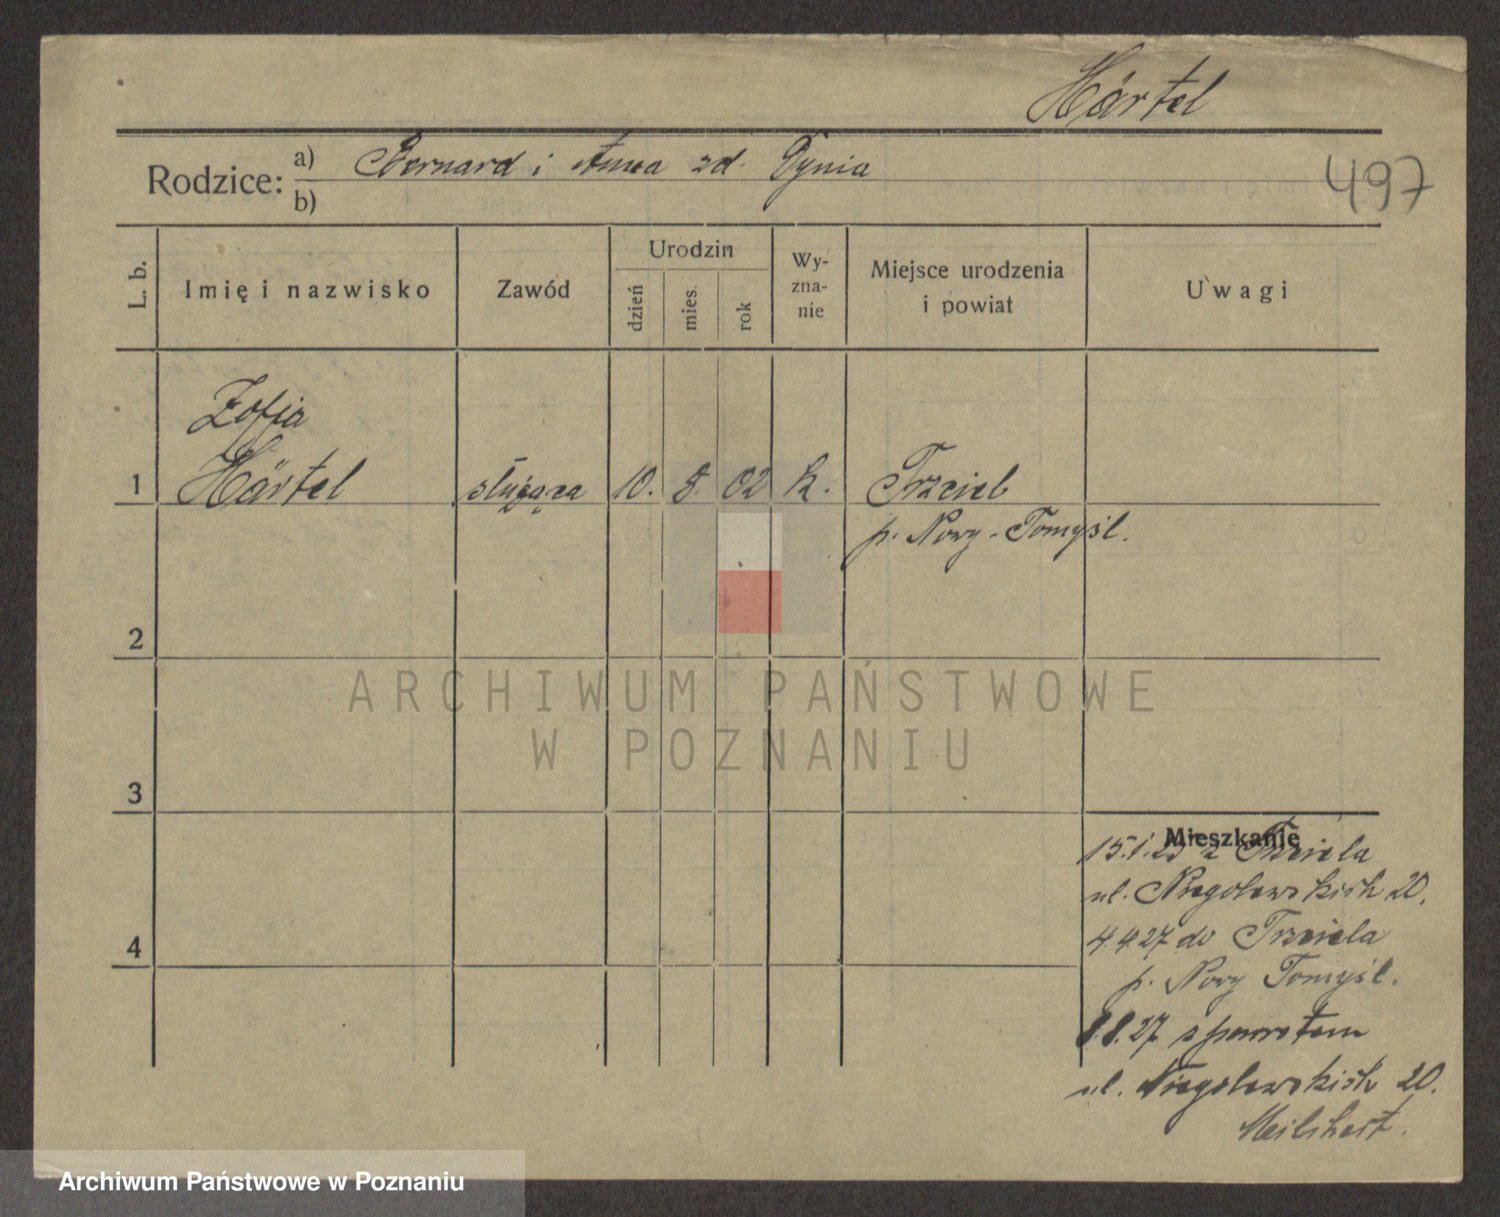 Härtel
Rodzice: a) Bernard i Anna zd. Dynia
b)
497
L. b.
Imię i nazwisko
Zawód
Urodzin
dzień
mies.
rok
Wy-
zna-
nie
Miejsce urodzenia
i powiat
Uwagi
Zofja
1 Härtel służąca 10. 8. 02 k. Trzciel
p. Nowy-Tomyśl.
2
ARCHIWUM PAŃSTWOWE
W POZNANIU
3
Mieszkanie
15.1.25 z Trzciela
ul. Niegolewskich 20.
4.4.27 do Trzciela
p. Nowy Tomyśl.
8.8.27 spowrotem
ul. Niegolewskich 20.
4
Archiwum Państwowe w Poznaniu